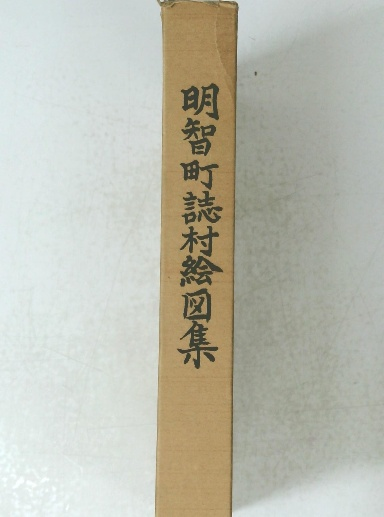 明智町誌村絵図集